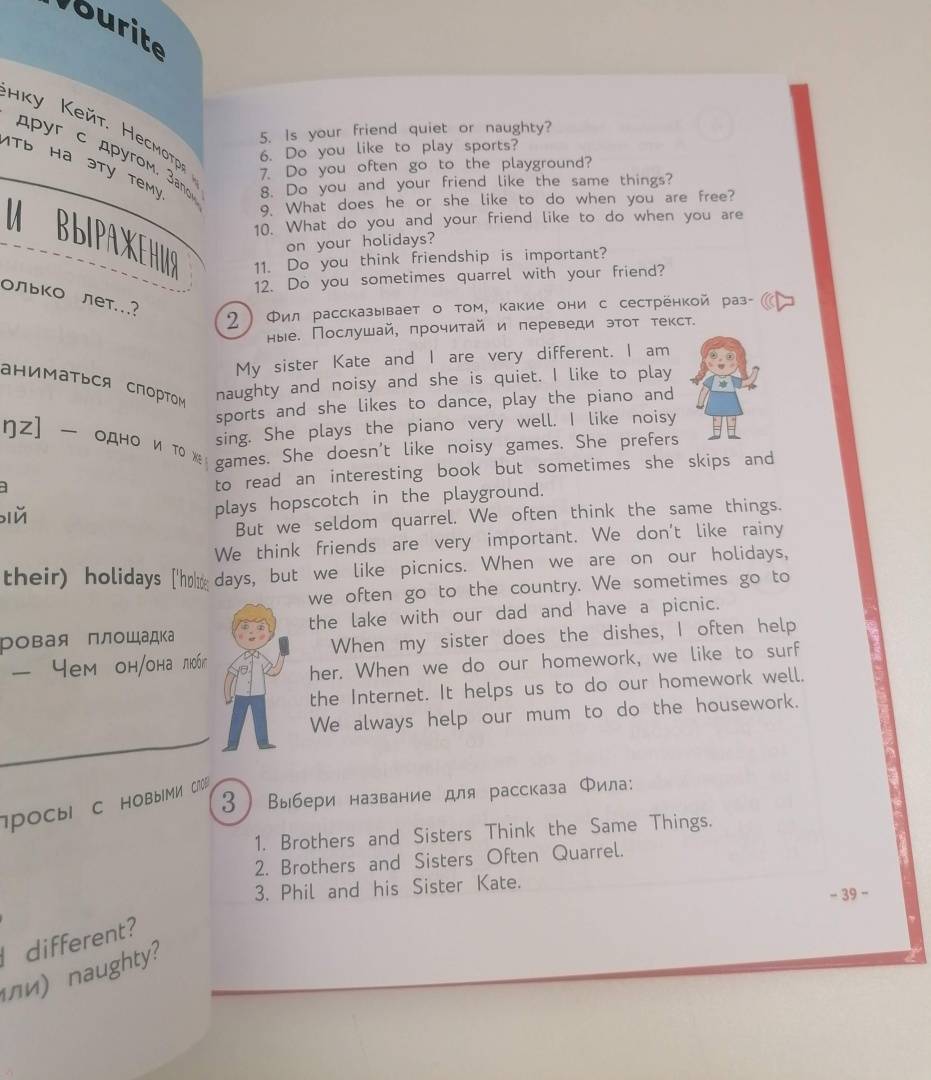 vourite
ёнку Кейт. Несмотря на
друг с другом. Запом
ить на эту тему.
И ВЫРАЖЕНИЯ
олько лет...?
аниматься спортом
ŋz] — одно и то же
а
ый
their) holidays ['hɒlɪdeɪ
ровая площадка
— Чем он/она люби
просы с новыми слова
d different?
или) naughty?
5. Is your friend quiet or naughty?
6. Do you like to play sports?
7. Do you often go to the playground?
8. Do you and your friend like the same things?
9. What does he or she like to do when you are free?
10. What do you and your friend like to do when you are
on your holidays?
11. Do you think friendship is important?
12. Do you sometimes quarrel with your friend?
2 Фил рассказывает о том, какие они с сестрёнкой раз-
ные. Послушай, прочитай и переведи этот текст.
My sister Kate and I are very different. I am
naughty and noisy and she is quiet. I like to play
sports and she likes to dance, play the piano and
sing. She plays the piano very well. I like noisy
games. She doesn't like noisy games. She prefers
to read an interesting book but sometimes she skips and
plays hopscotch in the playground.
But we seldom quarrel. We often think the same things.
We think friends are very important. We don't like rainy
days, but we like picnics. When we are on our holidays,
we often go to the country. We sometimes go to
the lake with our dad and have a picnic.
When my sister does the dishes, I often help
her. When we do our homework, we like to surf
the Internet. It helps us to do our homework well.
We always help our mum to do the housework.
3 Выбери название для рассказа Фила:
1. Brothers and Sisters Think the Same Things.
2. Brothers and Sisters Often Quarrel.
3. Phil and his Sister Kate.
- 39 -